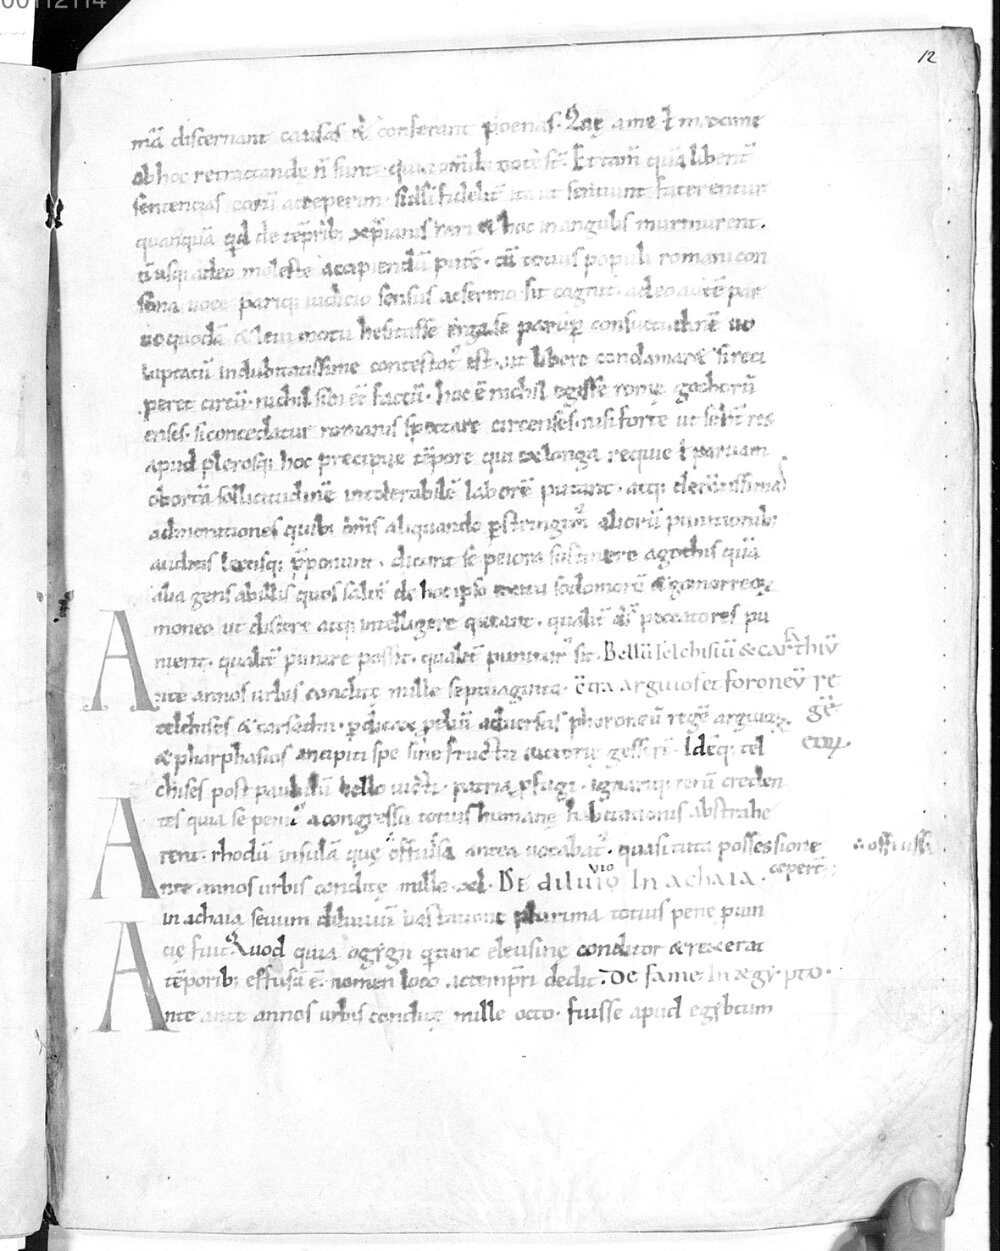 00112114
12
mā discernant causas & conferant poenas. Quę a me ł maxime
ob hoc retractandę ñ sunt. quia omib; notę st̄. Et tam̄ quā libent̄
sententias eorū acceperim. si illi fidelit̄ ita ut sentiunt faterentur
quamquā qd de tēporib; xp̄ianis rari & hoc in angulis murmurent.
ñ usq; adeo moleste accipiendū putē. cū totius populi romani con
sona uoce pariq; iudicio sensus ac sermo sit cognit. adeo autē par
uo quodā & leui motu hesitasse erga se parūp consuetudinē uo
luptatū indubitatissime contestat est. ut libere conclamaret si reci
peret circū. nichil sibi eē factū. hoc ē nichil egisse romę gothorū
enses. si concedatur romanis spectare circenses. nisi forte ut se habet res
apud plerosq; hoc precipue tēpore qui ex longa requie ł paruam
obortā sollicitudinē intolerabilē laborē putant. atq; clementissimas
admonitiones quib; om̄s aliquando pstringimur aliorū punitionib;
auditis lectisq; pponunt. dicant se peiora sustinere a gothis quā
alia gens ab illis quos saltē de hoc ipso exitu sodomorū & gomorreoꝝ
moneo ut discere atq; intellegere queant. qualit̄ d̄s peccatores pu
nierit. qualit̄ punire possit. qualit̄ puniturus sit. Bellū telchisiū & carsathiū
Ante annos urbis conditę mille septuaginta. cōtra argiuos et foroneū re
gē
telchises & carsathii. pdicax pliū aduersus phoroneū regē argiuoꝝ
eoꝝ.
& pharphasios ancipiti spe sine fructu uictorię gesserunt. Idēq; tel
chises post paululū bello uicti. patria pfugi. ignariq; rerū creden
tes quia se penitus a congressu totius humanę habitationis abstrahe
rent. rhodū insulā quę offiusa antea uocabatur. quasi tuta possessione
offiussa
ceperunt
Ante annos urbis conditę mille xl. De diluuio in achaia.
in achaia seuum diluuiū uastatione plurima totius pene puin
cię fuit. Quod quia ogygii q tunc eleusinę conditor & rex erat
tēporib; effusū ē. nomen loco ac tempori dedit. De fame in ægypto.
Ante annos urbis conditę mille octo. fuisse apud egybtum